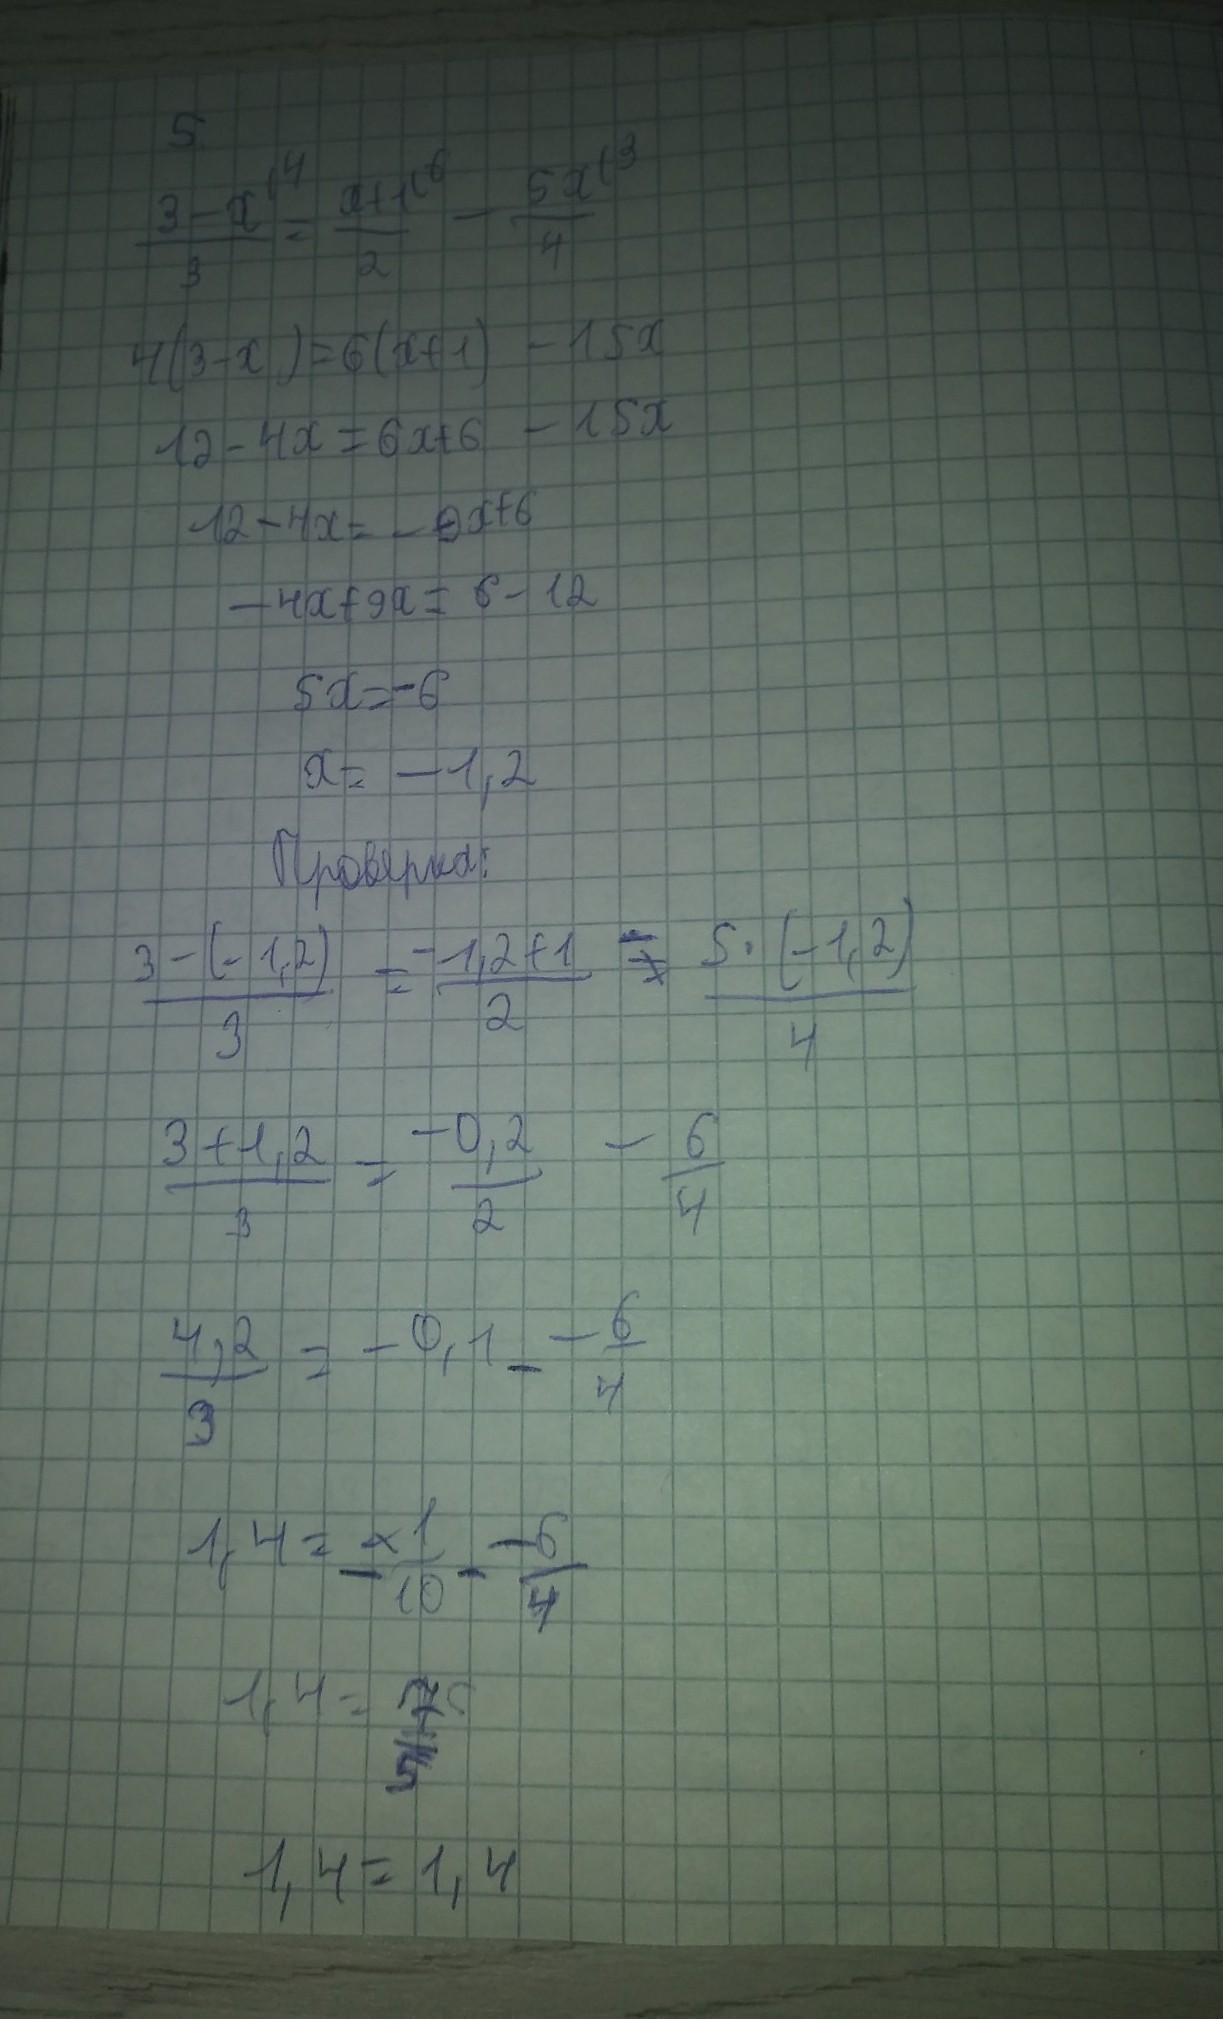 5
(3-x)/3 (4 = (x+1)/2 (6 - 5x/4 (3
4(3-x)=6(x+1) -15x
12-4x=6x+6 -15x
12-4x=-9x+6
-4x+9x=6-12
5x=-6
x=-1,2
Проверка:
(3-(-1,2))/3 = (-1,2+1)/2 - (5·(-1,2))/4
(3+1,2)/3 = -0,2/2 - 6/4
4,2/3 = -0,1 - -6/4
1,4 = -1/10 - -6/4
1,4=
1,4=1,4